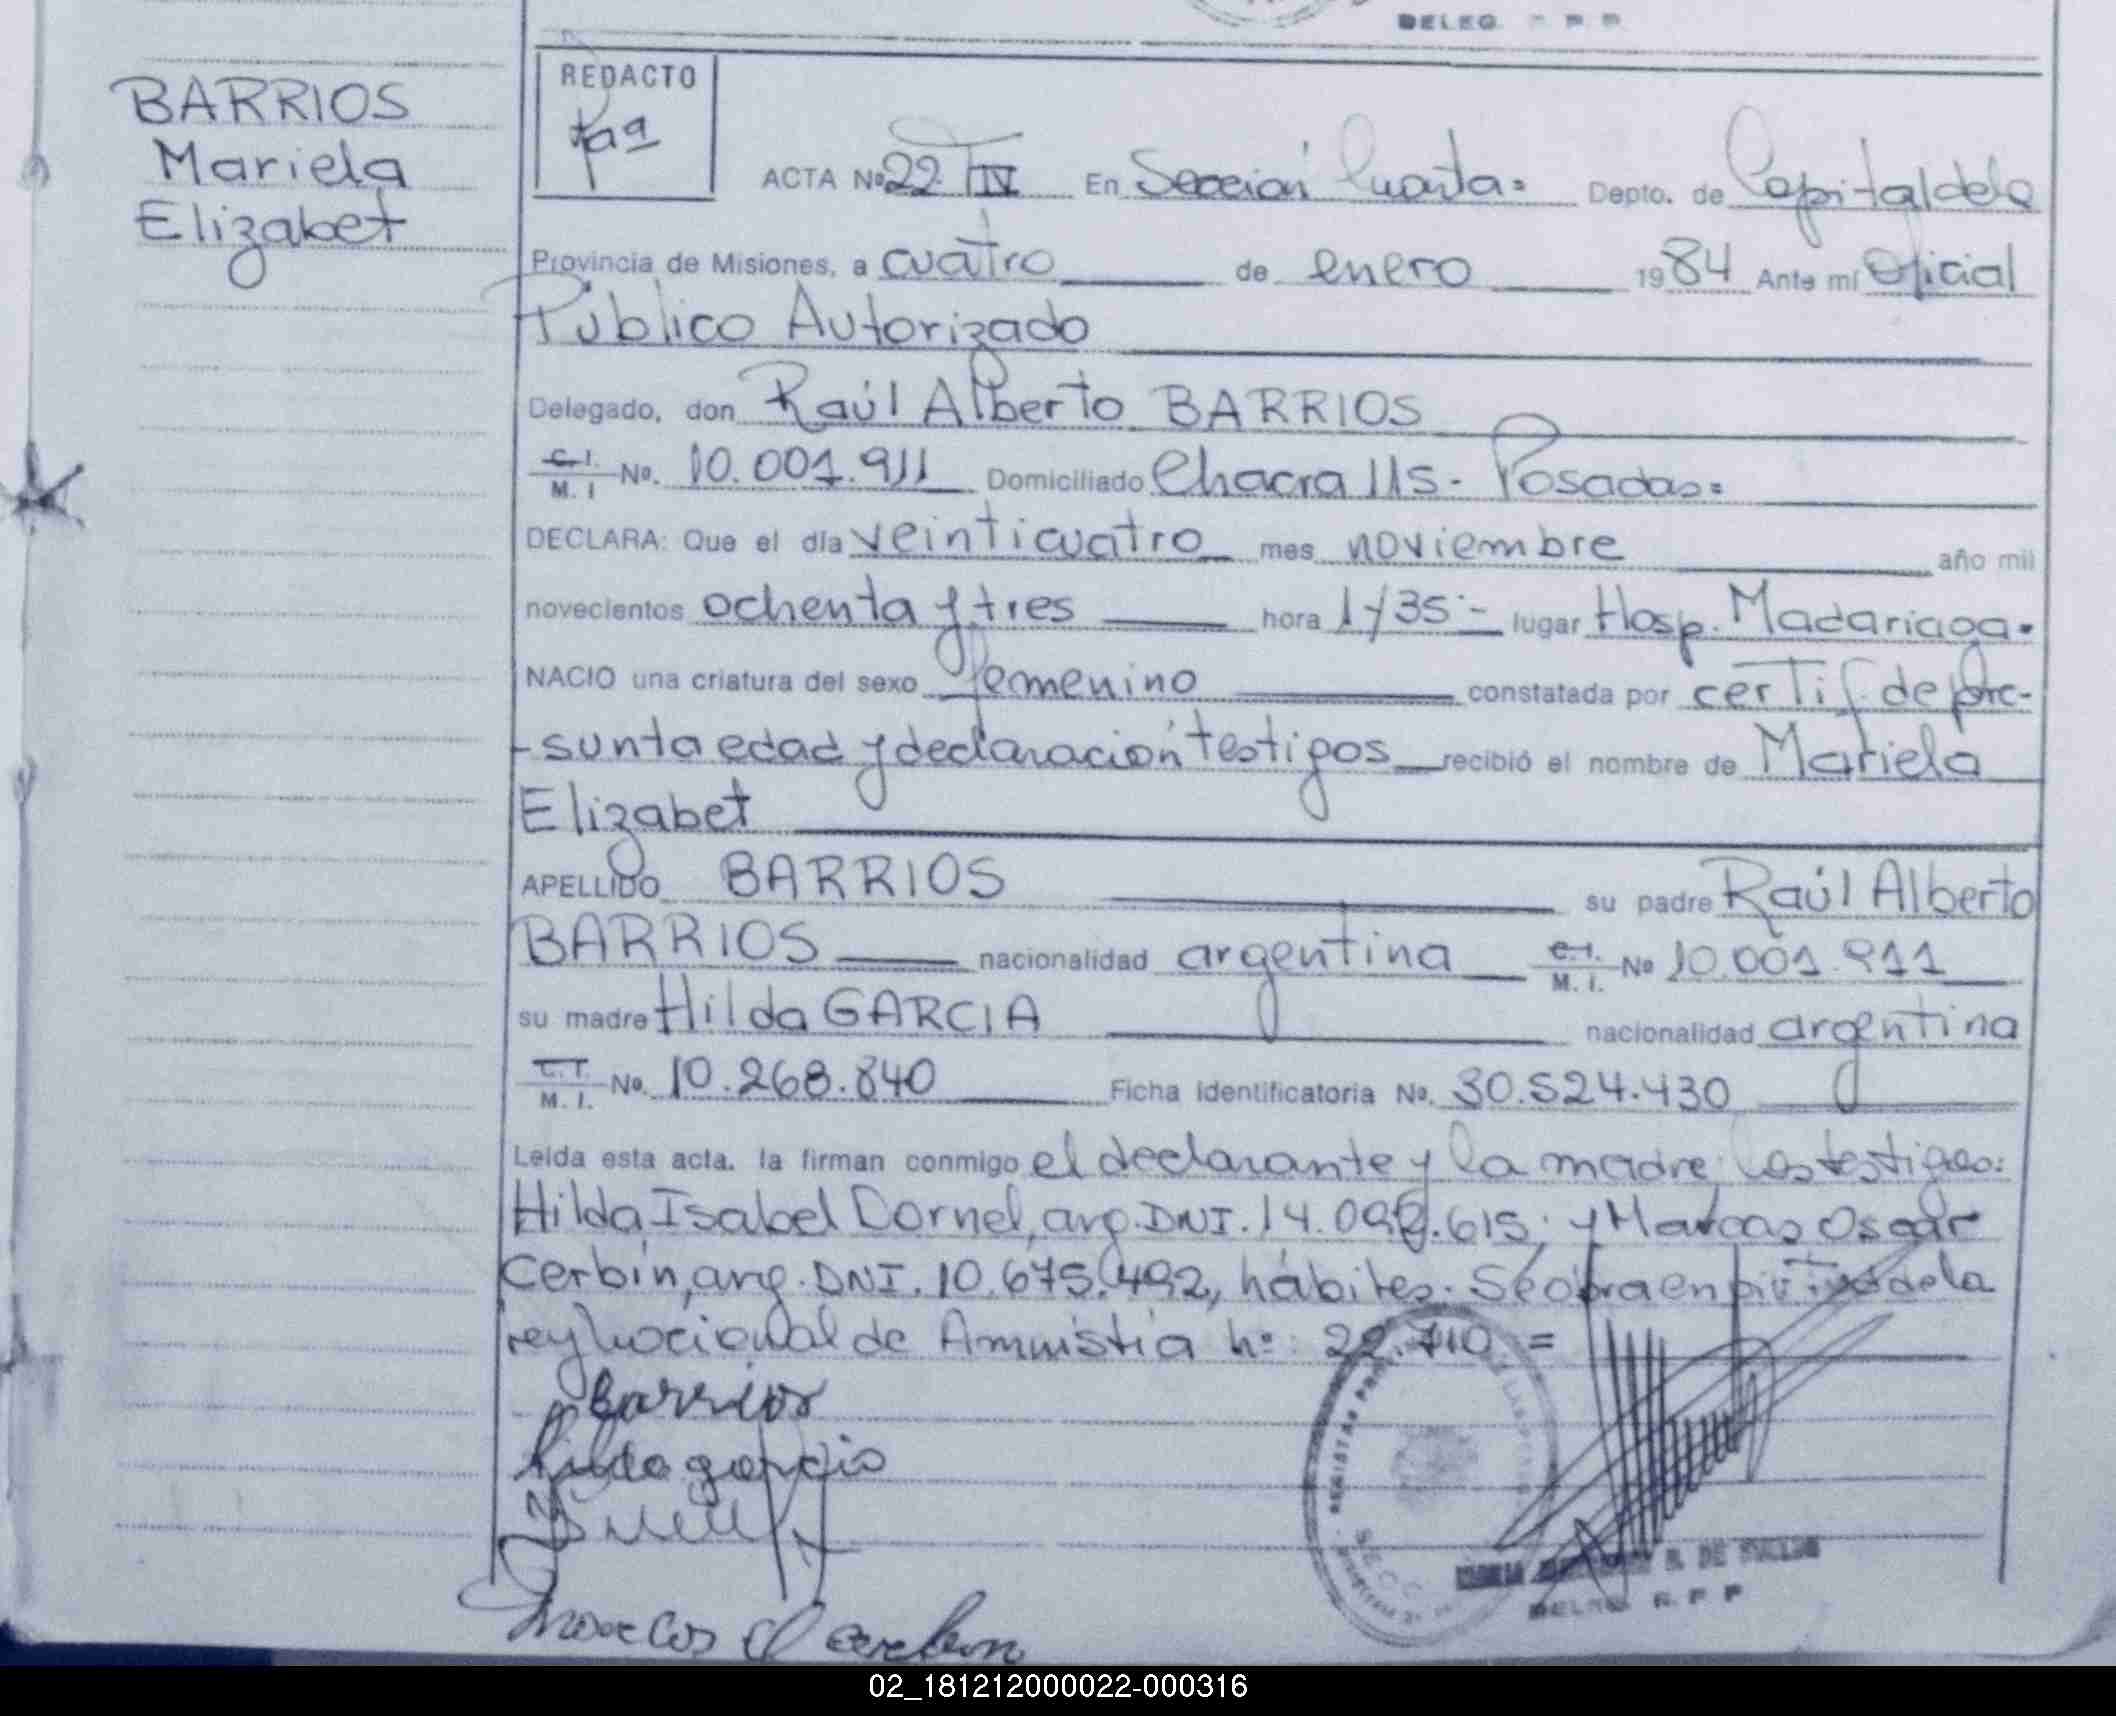 DELEG. R P P
BARRIOS
Mariela
Elizabet
REDACTO
ACTA Nº 22 T IV En Sección Cuarta= Depto. de Capital de la
Provincia de Misiones, a cuatro de enero 1984 Ante mí Oficial
Público Autorizado
Delegado, don Raúl Alberto BARRIOS
C. I. M. I Nº. 10.001.911 Domiciliado Chacra 115.- Posadas=
DECLARA: Que el día veinticuatro mes noviembre año mil
novecientos ochenta y tres hora 1y35:- lugar Hosp. Madariaga.
NACIO una criatura del sexo femenino constatada por certif. de pre-
-sunta edad y declaración testigos recibió el nombre de Mariela
Elizabet
APELLIDO BARRIOS su padre Raúl Alberto
BARRIOS nacionalidad argentina C.I. M. I. Nº 10.001.911
su madre Hilda GARCIA nacionalidad argentina
C.I. M. I. Nº. 10.268.840 Ficha identificatoria Nº. 30.524.430
Leída esta acta, la firman conmigo el declarante y la madre, los testigos:
Hilda Isabel Dornel, arg. DNI. 14.098.615; y Marcos Oscar
Cerbín, arg. DNI. 10.675.492, hábiles. Se obra en virtud de la
ley Nacional de Amnistía nº: 22.710 =
Barrios
Hilda garcia
DELEG. R. P P
02_181212000022-000316